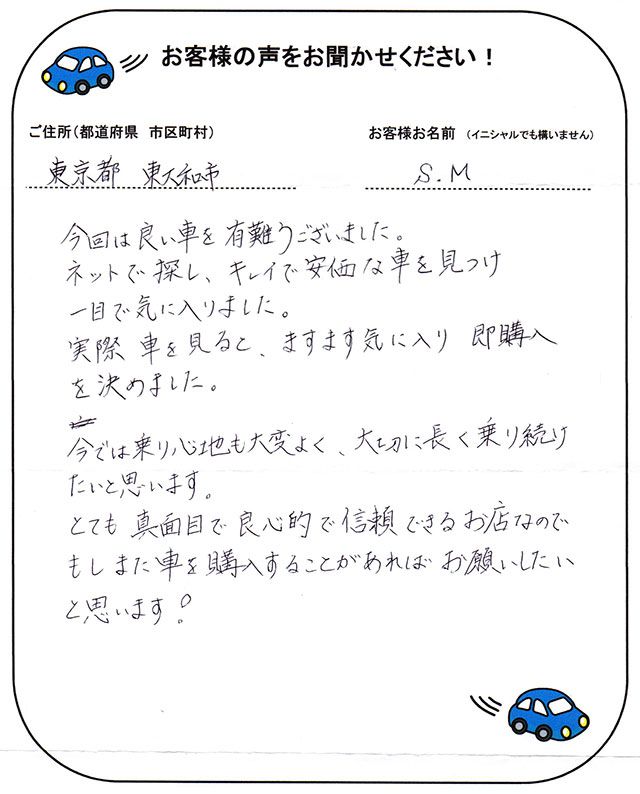 お客様の声をお聞かせください！
ご住所（都道府県　市区町村）
お客様お名前　（イニシャルでも構いません）
東京都　東大和市
S.M
今回は良い車を有難うございました。
ネットで探し、キレイで安価な車を見つけ
一目で気に入りました。
実際 車を見ると、ますます気に入り 即購入
を決めました。
今では乗り心地も大変よく、大切に長く乗り続け
たいと思います。
とても真面目で良心的で信頼できるお店なので
もしまた車を購入することがあればお願いしたい
と思います！